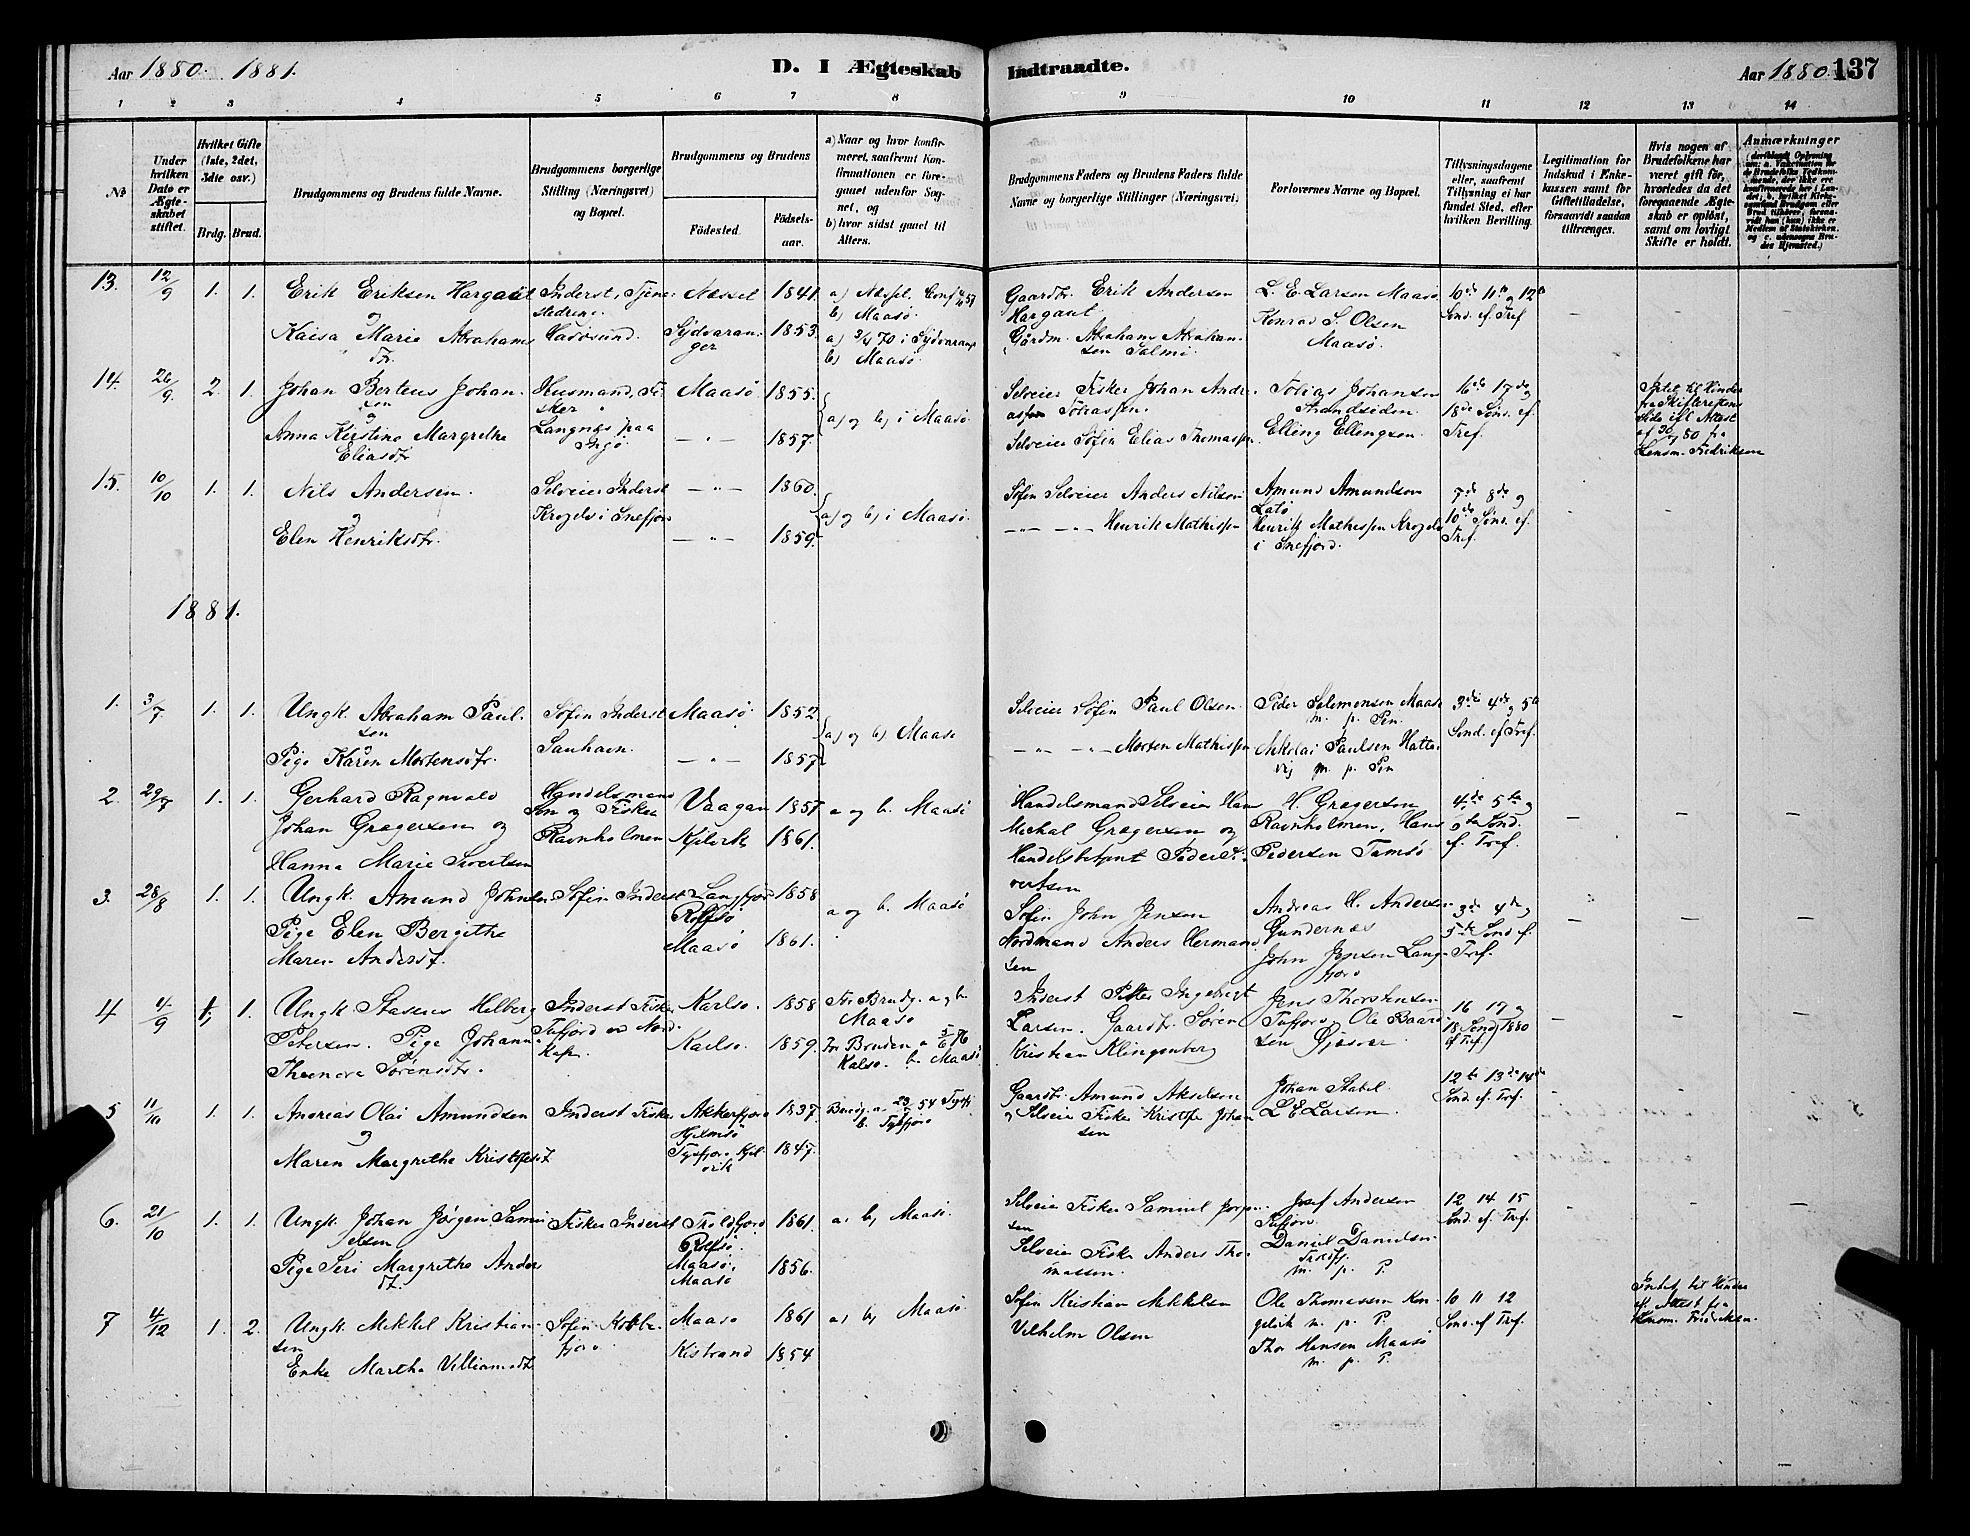 Aar 1880. 1881.
D. I Ægteskab Indtraadte.
Aar 1880. 137
1 2 3 4 5 6 7 8 9 10 11 12 13 14
No
Under hvilken Dato er Ægteskabet stiftet.
Hvilket Gifte (1ste, 2det, 3die osv.)
Brdg. Brud.
Brudgommens og Brudens fulde Navne.
Brudgommens borgerlige Stilling (Næringsvei) og Bopæl.
Brudgommens og Brudens
Födested.
Födselsaar.
a) Naar og hvor konfirmeret, saafremt Konfirmationen er foregaaet udenfor Sognet, og
b) hvor sidst gaaet til Alters.
Brudgommens Faders og Brudens Faders fulde Navne og borgerlige Stillinger (Næringsvei)
Forlovernes Navne og Bopæl.
Tillysningsdagene eller, saafremt Tillysning ei har fundet Sted, efter hvilken Bevilling.
Legitimation for Indskud i Enkekassen samt for Giftetilladelse, forsaavidt saadan tiltrænges.
Hvis nogen af Brudefolkene har været gift før, hvorledes da det foregaaende Ægteskab er oplöst, samt om lovligt Skifte er holdt.
Anmærkninger
13. 12/9 1. 1. Erik Eriksen Hargaut
og
Kaisa Marie Abrahams
dtr.
Inderst, Tjene
Havösund.
Næssel 1841.
Sydvaranger 1853.
a) Næssel.
b) Maasö.
a) 3/7 70 i Sydvarang.
b) Maasö.
Gaardbr. Erik Andersen
Hargaut
Gårdm. Abraham Abraham
sen Salmi.
L. E. Larsen Maasö
Konrad S. Olsen
Maasö.
10de 11te og 12te
Sönd. ef. Tref
14. 26/9 2. 1. Johan Berteus Johan
sen
og
Anna Kirstine Margrethe
Eliasdtr
Husmand, Fi
sker
Langnæs paa
Ingö
Maasö 1855.
— " — 1857.
a) og b) i Maasö
Selveier Fisker Johan Andr
eassen Tobiassen.
Selveier Söfin Elias Thomassen
Tobias Johansen
Strandsiden.
Elling Ellingsen.
16de 17de og
18de Sönd. ef.
Tref.
Intet til Hinder
fra Skifterettens
Side ifl. Attest
fra
Lensm. Fredriksen
15. 10/10 1. 1. Nils Andersen
og
Elen Henriksdtr.
Selveier Inderst
Krogels i Snefjord
— " — 1860.
— " — 1859.
a) og b) i Maasö.
Söfin Selveier Anders Nilsen
— " — — " — Henrik Mathissen
Amund Amundsen
Lato
Henrik Mathissen Krogels
i Snefjord.
7de 8de og
10de Sönd. ef.
Tref.
1881.
1. 3/7. 1. 1. Ungk. Abraham Paul
sen
og
Pige Karen Mortensdtr.
Söfin Inderst
Sanhavn.
Maasö 1852
— " — 1857
a) og b) Maasö
Selveier Söfin Paul Olsen.
— " — — " — Morten Mathissen
Peder Salemonsen Maasö
m. p. Pen.
Nikolai Paulsen Hatte
vig m. p. Pen
3die 4de og 5te
Sönd. ef Tref.
2. 29/7 1. 1. Gerhard Ragnvald
Johan Gregersen og
Hanna Marie Sivertsen
Handelsmand
Sön og Fisker
Ravnholmen
Vaagan 1857
Kjelvik 1861.
a og b. Maasö
Handelsmand Selveier Hans
Michal Gregersen og
Handelsbetjent Peder Si
vertsen
H. Gregersen
Ravnholmen, Hans
Pedersen Tamsö
4de 5te og
6te Sönd.
ef. Tref.
3. 28/8 1. 1. Ungk. Amund Johnsen
Pige Elen Bergithe
Maren Andersd.
Söfin Inderst
Langfjord
Rolfsö 1858
Maasö 1861.
a og b. Maasö
Söfin John Jensen
Nordmand Anders Herman
sen
Andreas H. Andersen
Gundernæs
John Jensen Lang
fjord
3de 4de og
5te Sönd ef.
Tref.
4 4/9 1, 1. Ungk. Staseus Helberg
Petersen. Pige Johanna
Theonora Sörensdtr.
Inderst Fisker
Tufjord ved Nord
kap.
Karlsö. 1858
Karlsö. 1859.
For Brudg. a og b.
Maasö
For Bruden a 5/6 76
Kalsö. b. Maasö
Inderst Petter Ingebrigt
Larsen. Gaardbr. Sören
Kristian Klingenberg
Jens Thorstensen
Tufjord, Ole Baard
sen Gjesvær
16 17 og
18 Sönd 1880
ef Tref.
5 11/10 1. 1. Andreas Olai Amundsen
og
Maren Margrethe Kristofersd
Inderst Fisker
Akkerfjord
Hjelmsö 1837.
Tysfjord Kjel
vik 1847.
Brudg. a. 23/7 54
b. Tysfjord
Gaardbr. Amund Akselsen
og Selveier Fisker Kristoffer Johan
sen
Johan Stabel
L. E. Larsen.
12te 13de 14de
Sönd. ef. Tref.
6. 21/10 1. 1. Ungk. Johan Jörgen Samu
elsen
Pige Siri Margrethe Anders
dt.
Fisker Inderst
Troldfjord
Rolfsö. 1861.
Maasö,
Maasö 1856.
a) b) Maasö.
Selveier Fisker Samuel Jorgen
sen
Selveier Fisker Anders Tho
massen.
Josef Andersen
Tufjord.
Daniel Danielsen
m. p. P.
12 14 15
Sönd. ef. Tref.
7 4/12 1. 2. Ungk. Mikkel Kristian
sen
Enke Martha Villiamsdtr
Söfin Kobbe
fjord
Maasö 1861
Kistrand 1854
a) b) Maasö.
Söfin Kristian Mikkelsen
Vilhelm Olsen
Ole Thomassen Kon
gelvik m. p. P
Thor Hansen Maasö
m. p. P.
10 11 12
Sönd. ef Tref.
Intet til Hinder
ef. Attest fra
Lensm. Fredriksen.